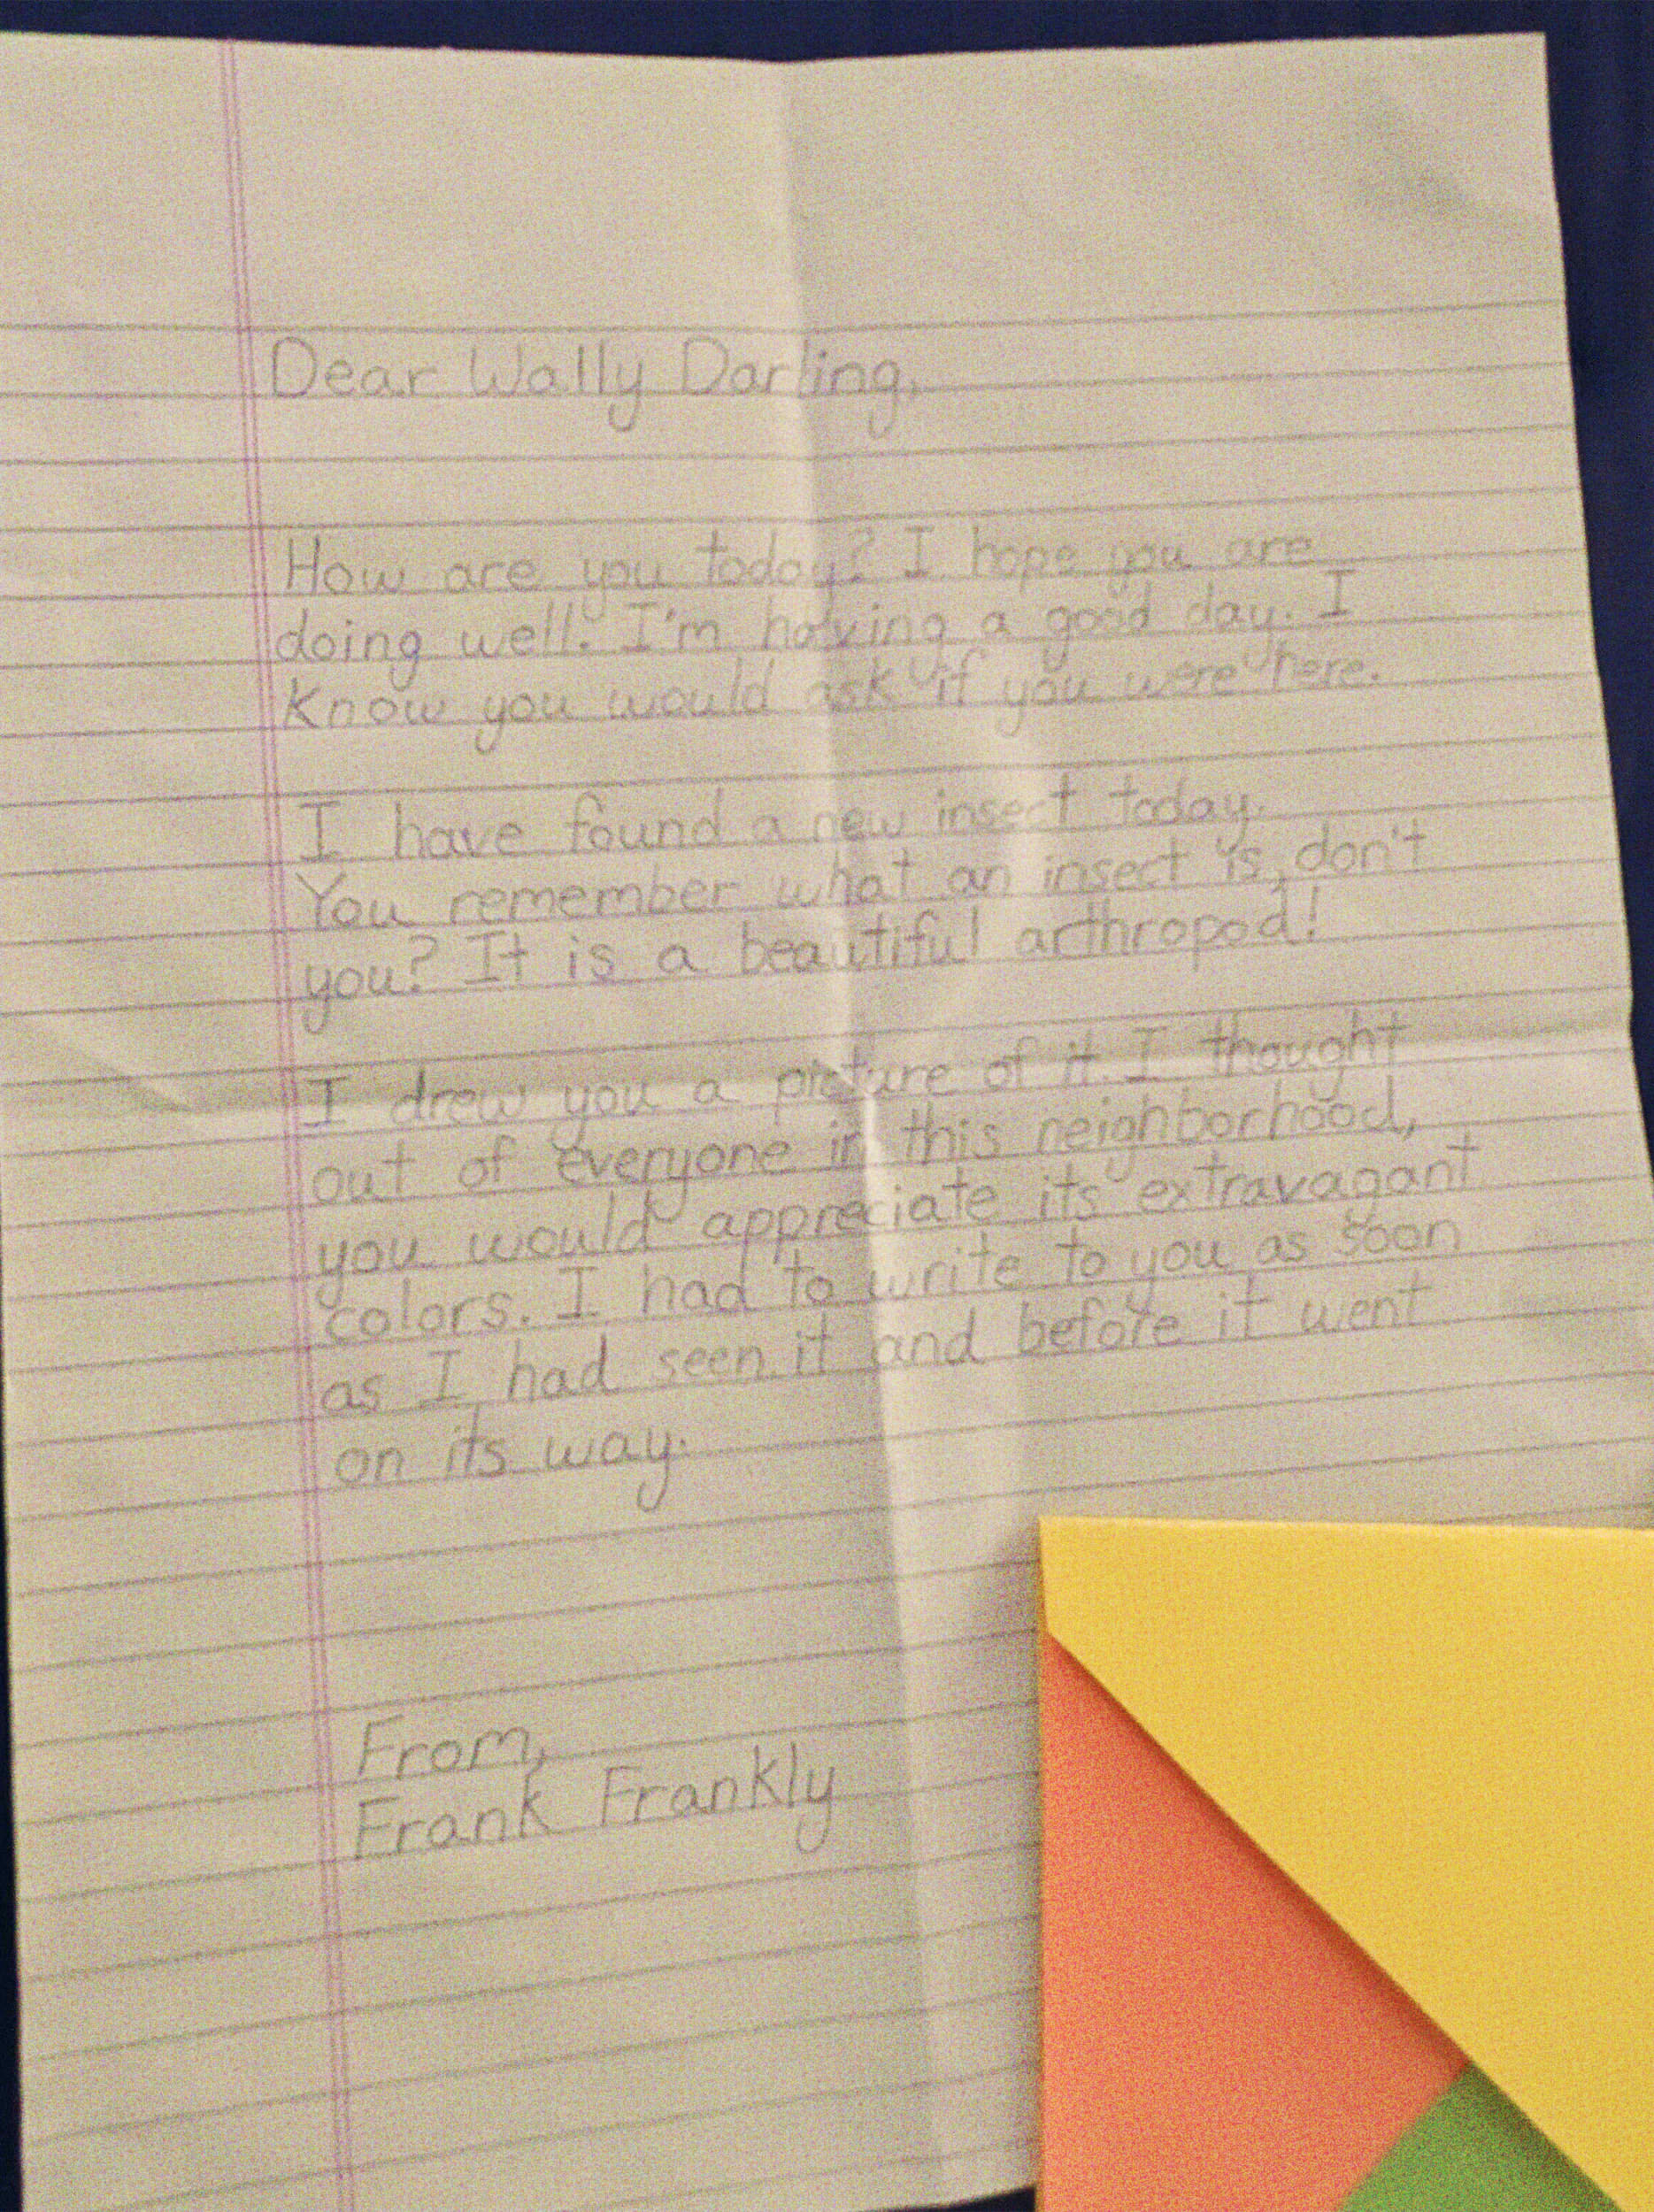 Dear Wally Darling,
How are you today? I hope you are
doing well. I'm having a good day. I
know you would ask if you were here.
I have found a new insect today.
You remember what an insect is, don't
you? It is a beautiful arthropod!
I drew you a picture of it. I thought
out of everyone in this neighborhood,
you would appreciate its extravagant
colors. I had to write to you as soon
as I had seen it and before it went
on its way.
From,
Frank Frankly